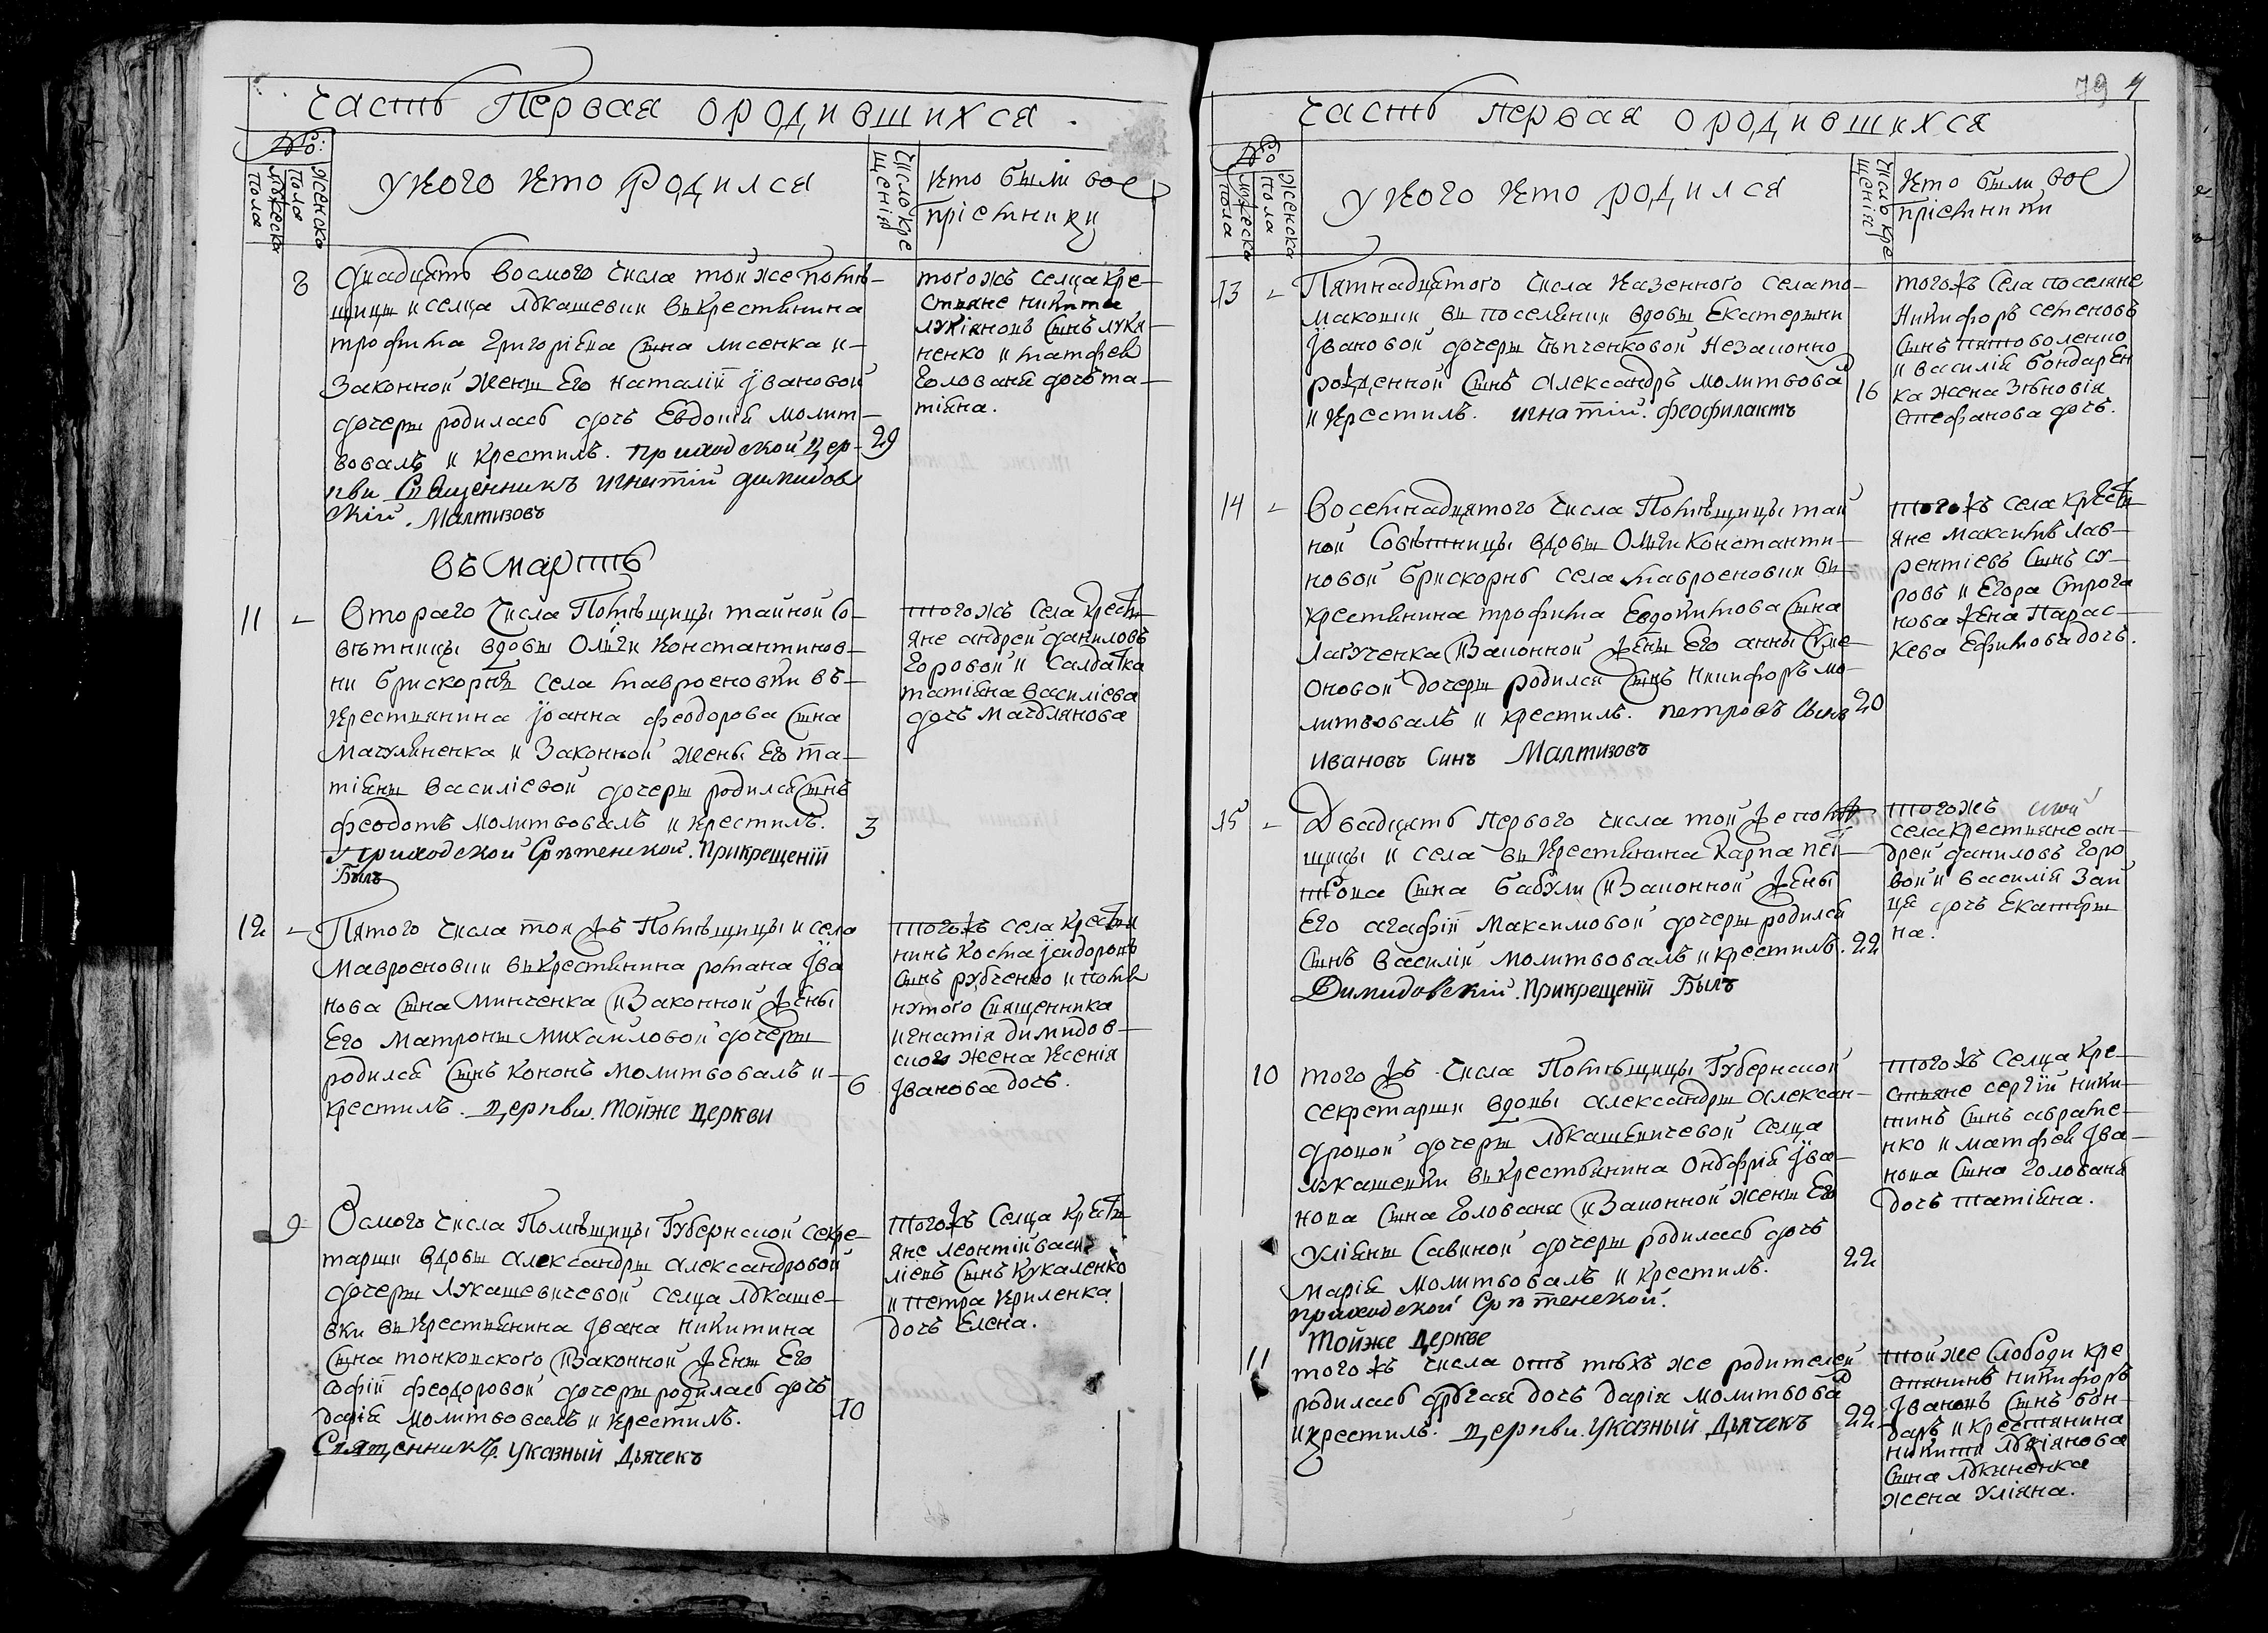 Часть Первая ородившихся.
№:
Мужеска пола
Женска пола
укого кто родился
Число кре
щенія
кто были вос
пріемники
8
Дватцять восмого числа тойже помѣ-
щицы и селца Лукашевки въ крестянина
трофима Григоріева сына лисенка и-
законной жены его наталіи Івановой
дочеры родилась дочь Евдокія молит-
вовалъ и крестилъ. приходской цер-
кви Священникъ игнатій димидов
скій. Малтизовъ
29
тогожъ селца кре-
стяне никита
лукіяновъ сынъ лукя-
ненко и матфея
Голованя дочь та-
тіяна.
въ мартѣ
11 -
Втораго числа Помѣщицы тайной со-
вѣтницы вдовы Олги Константинов-
ны брискорня села мавроеновки въ-
крестянина Іоанна феодорова сына
Мачуляненка и законной жены его та-
тіяны василіевой дочеры родился сынъ
феодотъ молитвовалъ и крестилъ.
у приходской Срѣтенской. Прикрещеній
Былъ
3
тогожъ села крести-
яне андрей даниловъ
Горовой и салдатка
татіяна василіева
дочь мачулянова
12 -
Пятого числа той жъ Помѣщицы и села
мавроеновки въ крестянина романа Іва
нова сына минченка и законной жены
его матроны михайловой дочеры
родился сынъ кононъ молитвовалъ и-
крестилъ. церкви. тойже церкви
6
тогожъ села крестя
нинъ косма ісидоровъ
сынъ рубченко и помя
нутого священника
игнатія димидов-
ского жена ксенія
Іванова дочь.
9-
Осмого числа Помѣщицы Губернской секре-
тарши вдовы александры александровой
дочеры Лукашевичевой селца Лукаше-
вки въ крестянина Івана никитина
сына тонконского и законной жены его
софіи феодоровой дочеры родилась дочь
дарія молитвовалъ и крестилъ.
Священникъ. указный Дьячекъ
10
тогожъ селца крести-
яне леонтій васи-
ліевъ сынъ кукаленко
и петра криленка
дочь Елена.
79 4
Часть первая ородившихся
№
мужеска пола
Женска пола
укого кто родился
Число кре
щенія
кто были вос
пріемники
13 -
Пятнадцятого числа казенного села то-
маковки въ поселянки вдовы Екатерины
Івановой дочеры Незаконно
рожденной сынъ александръ молитвова
и крестилъ. игнатій. феофилактъ
16
тогожъ села поселяне
Никифоръ семеновъ
сынъ
и василія бондарен
ка жена Зѣновія
стефанова дочь.
14 -
Восемнадцятого числа Помѣщицы тай
ной совѣтницы вдовы Олги Константи-
новой брискорнъ села мавроеновки въ
крестянина трофима Евдокимова сына
и законной жены его анны симе-
оновой дочеры родился сынъ никифоръ мо-
литвовалъ и крестилъ. петровъ сынъ
Ивановъ синъ Малтизовъ
20
тогожъ села крести
яне максимъ лав-
рентіевъ сынъ су-
ровъ и Егора строга
нова жена Парас-
кева Ефимова дочь.
15 -
Двадцять первого числа той же помѣ
щицы и села въ крестянина карпа пет-
рова сына бабули и законной жены
его агафіи максимовой дочеры родился
сынъ василій молитвовалъ и крестилъ.
Димидовскій. Прикрещеній Былъ
22
тогожъ
села крестияне ан-
дрей даниловъ горо
вой и василія зай
ця дочь Екатеры
на.
10
того жъ числа Помѣщицы Губернской
секретарши вдовы александры алексан-
дровой дочеры Лукашевичевой селца
лукашевки въ крестьянина Онуфрія Іва-
нова сына голованя и законной жены его
уліяны савиной дочеры родилась дочь
марія молитвовалъ и крестилъ.
приходской Срѣтенской.
Тойже Церкве
22
тогожъ селца кре-
стьяне сергій ники-
тинъ сынъ авраме-
нко и матфея Іва-
нова сына голованя
дочь татіяна.
11
того жъ числа отъ тѣхъ же родителей
родилась другая дочь дарія молитвова
и крестилъ. церкви. указный дьячекъ
22
той же слободи кре
стянинъ никифоръ
Івановъ сынъ бон-
даръ и крестянина
никиты лукіянова
сына лукяненка
жена уліяна.